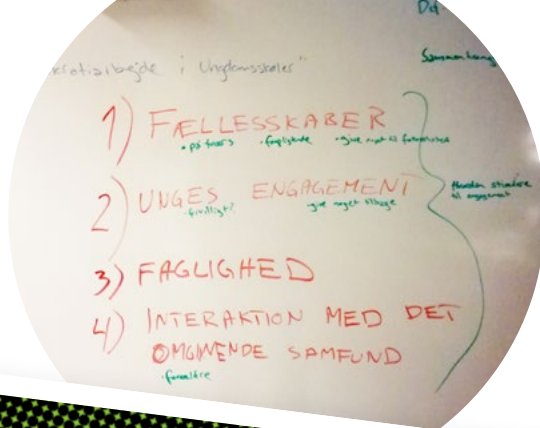 Det
Sammenhæng
i Ungdomsskoler"
1) FÆLLESSKABER
• på tværs • forpligtende
2) UNGES ENGAGEMENT
• frivilligt? • give noget tilbage
Hvordan stimulere
til engagement
3) FAGLIGHED
4) INTERAKTION MED DET
OMGIVENDE SAMFUND